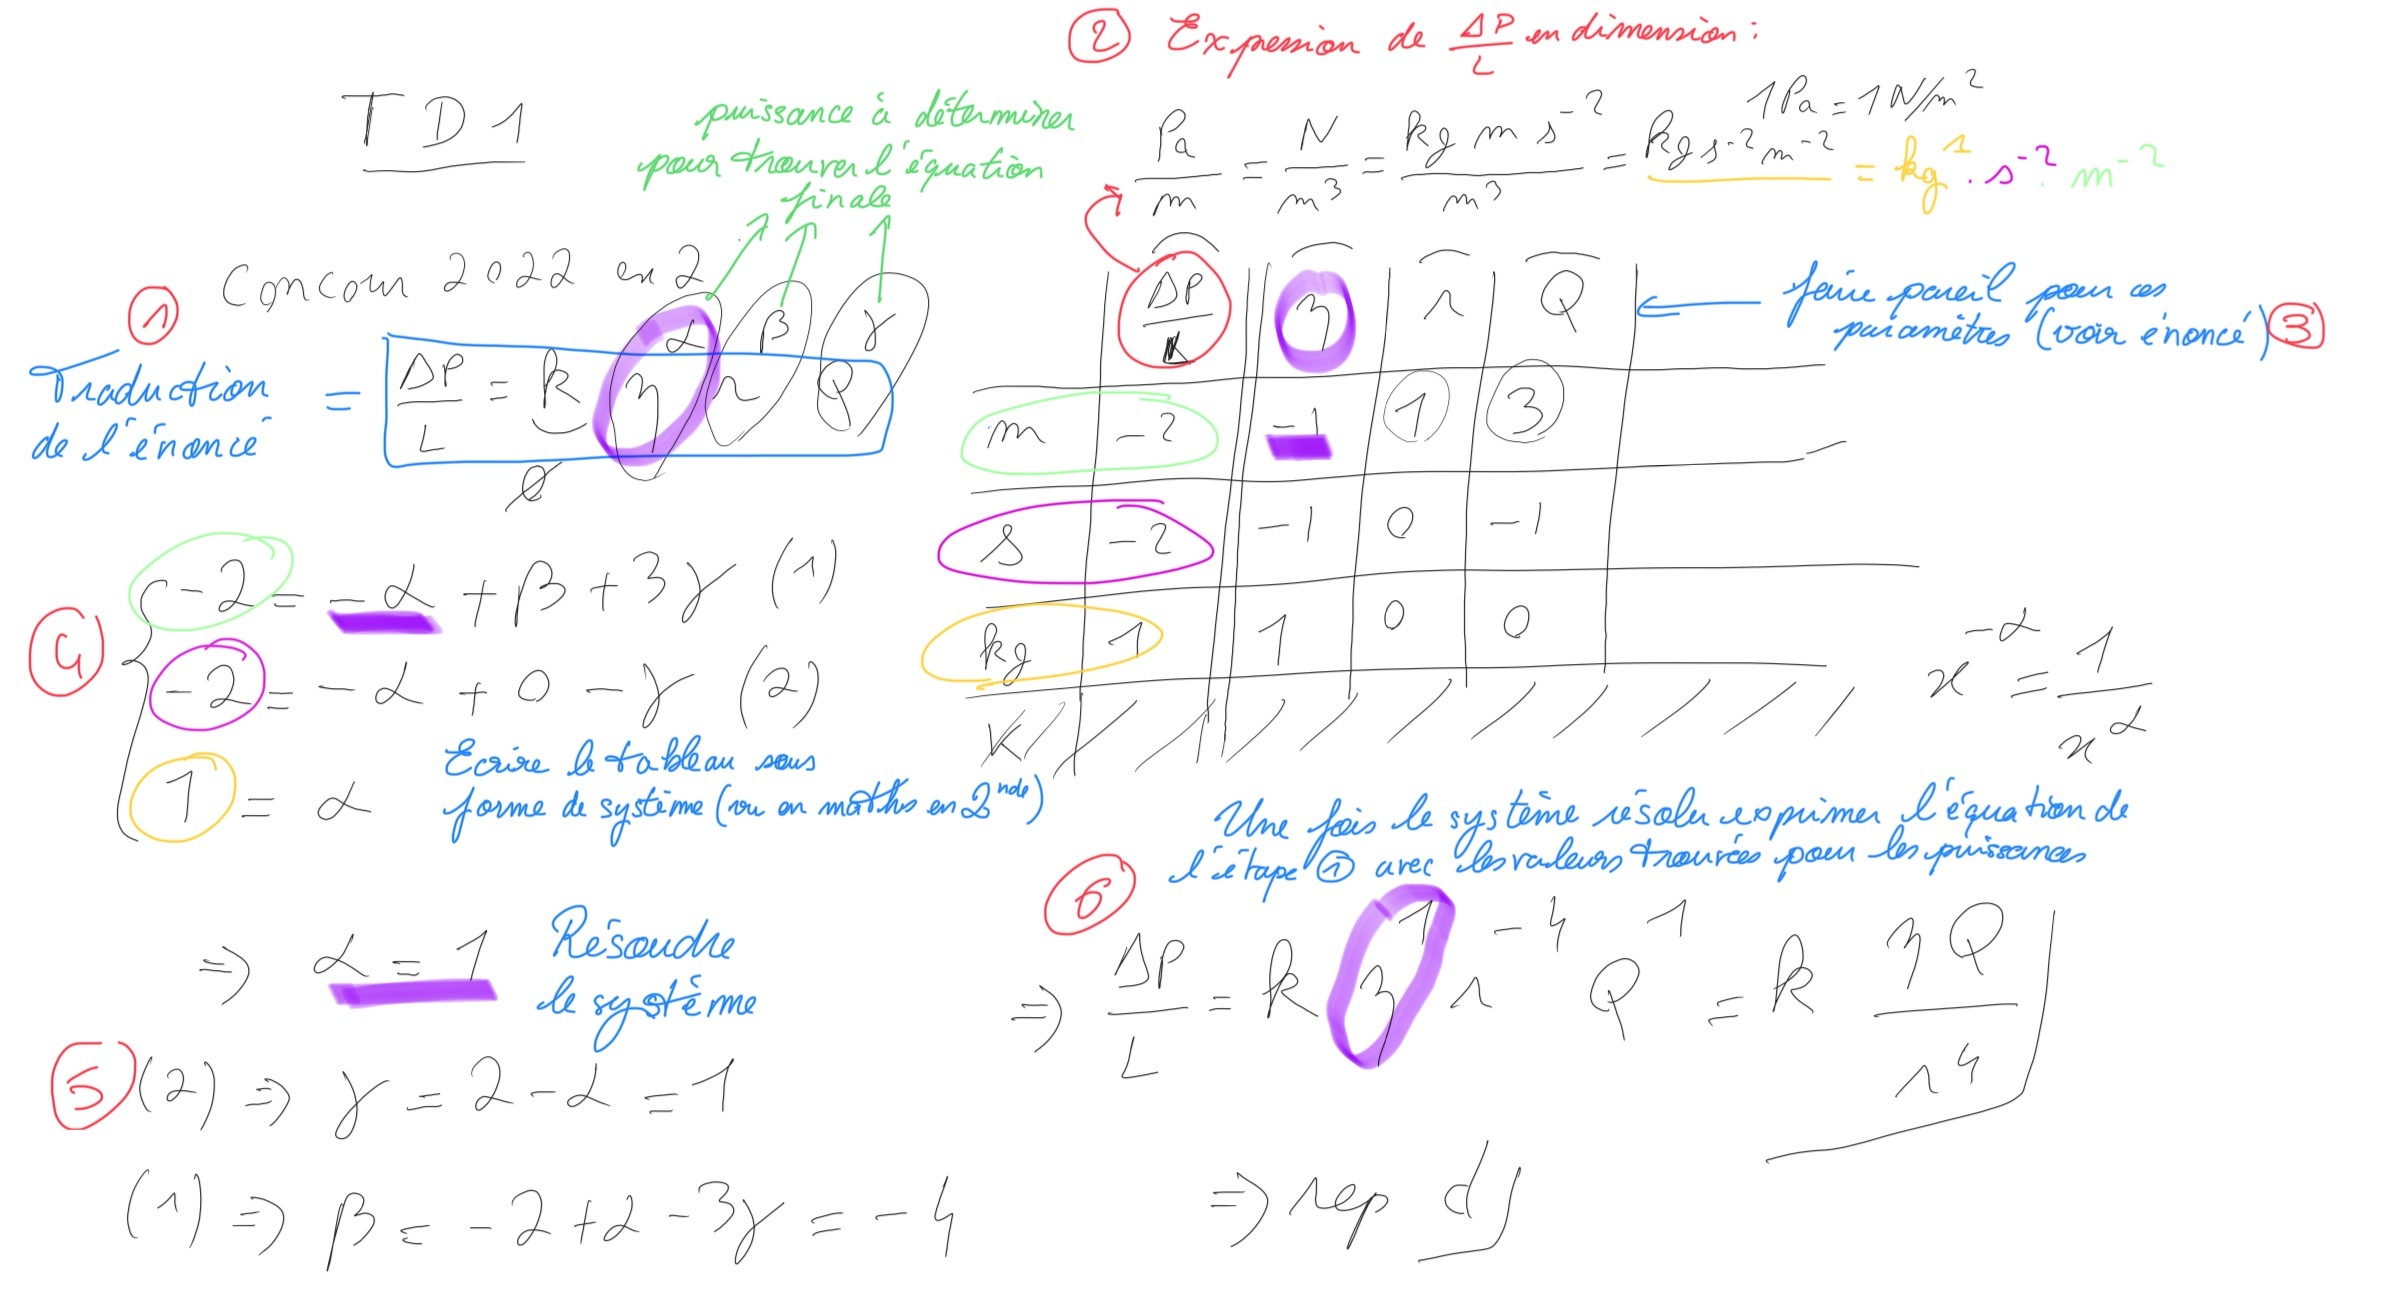 TD1
puissance à déterminer
pour trouver l'équation
finale
Concour 2022 ex 2
①
Traduction
de l'énoncé
=
ΔP/L = k η^α r^β Q^γ
∅
② Expression de ΔP/L en dimension :
1Pa = 1N/m²
Pa/m = N/m³ = kg m s⁻²/m³ = kg s⁻² m⁻² = kg¹ . s⁻² . m⁻²
ΔP/L η r Q
faire pareil pour ces
paramètres (voir énoncé) ③
m -2 -1 1 3
s -2 -1 0 -1
kg 1 1 0 0
K
x^-α = 1/x^α
④
-2 = -α + β + 3γ (1)
-2 = -α + 0 - γ (2)
1 = α
Ecrire le tableau sous
forme de système (vu en maths en 2nde)
⇒ α = 1
Résoudre
le système
⑤ (2) ⇒ γ = 2 - α = 1
(1) ⇒ β = -2 + α - 3γ = -4
Une fois le système résolu exprimer l'équation de
l'étape ① avec les valeurs trouvées pour les puissances
⑥
⇒ ΔP/L = k η¹ r⁻⁴ Q¹ = k ηQ/r⁴
⇒ rep d)